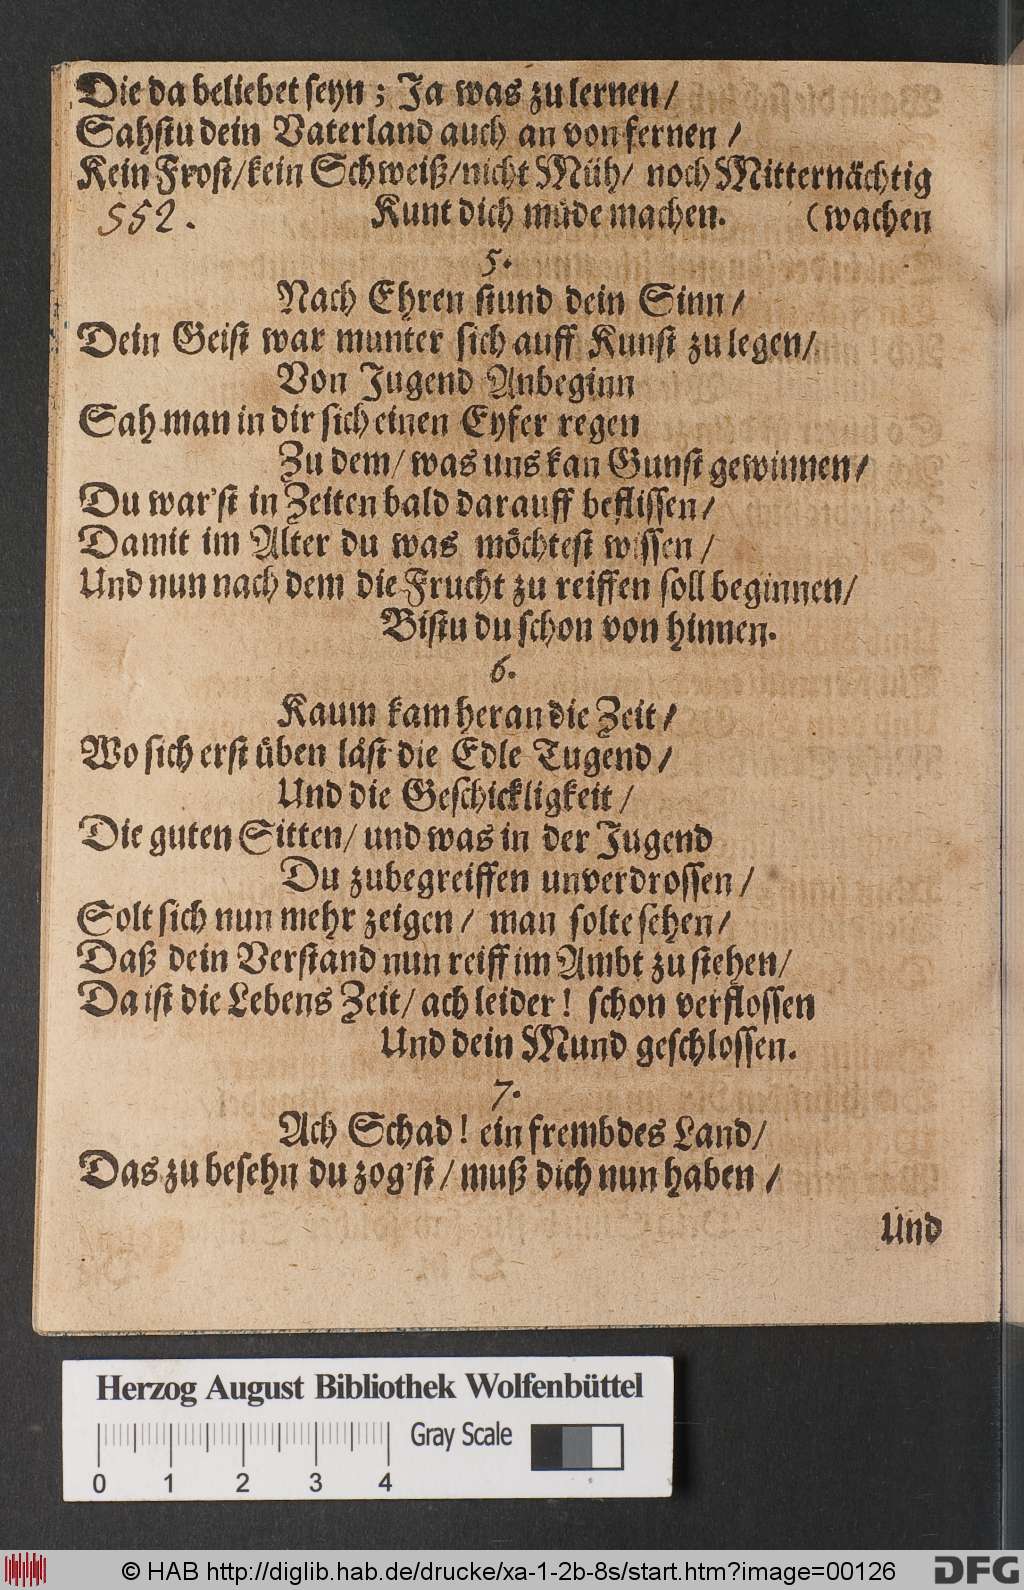 Die da beliebet seyn; Ja was zu lernen/
Sahstu dein Vaterland auch an von fernen /
Kein Frost/kein Schweiß/nicht Müh/ noch Mitternächtig
552. Kunt dich müde machen. (wachen
5.
Nach Ehren stund dein Sinn /
Dein Geist war munter sich auff Kunst zu legen/
Von Jugend Anbeginn
Sah man in dir sich einen Eyfer regen
Zu dem/ was uns kan Gunst gewinnen/
Du war'st in Zeiten bald darauff beflissen/
Damit im Alter du was möchtest wissen /
Und nun nach dem die Frucht zu reiffen soll beginnen/
Bistu du schon von hinnen.
6.
Kaum kam heran die Zeit/
Wo sich erst üben läst die Edle Tugend/
Und die Geschickligkeit /
Die guten Sitten/ und was in der Jugend
Du zubegreiffen unverdrossen /
Solt sich nun mehr zeigen / man solte sehen/
Daß dein Verstand nun reiff im Ambt zu stehen/
Da ist die Lebens Zeit/ ach leider! schon verflossen
Und dein Mund geschlossen.
7.
Ach Schad! ein frembdes Land/
Das zu besehn du zog'st / muß dich nun haben /
Und
Herzog August Bibliothek Wolfenbüttel
Gray Scale
0 1 2 3 4
© HAB http://diglib.hab.de/drucke/xa-1-2b-8s/start.htm?image=00126
DFG